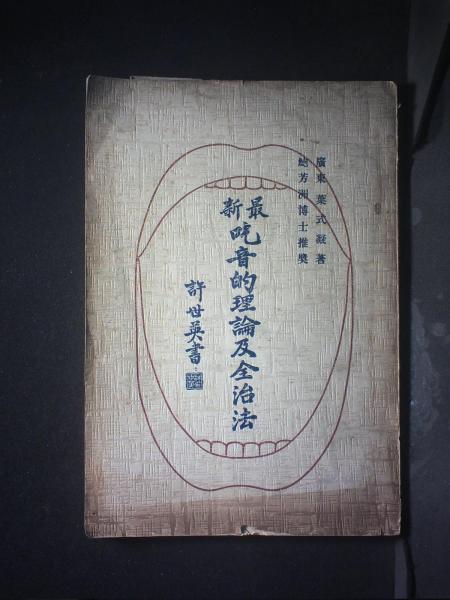 廣東葉式凝著
鮑芳洲博士推奬
最新
吃音的理論及全治法
許世英書